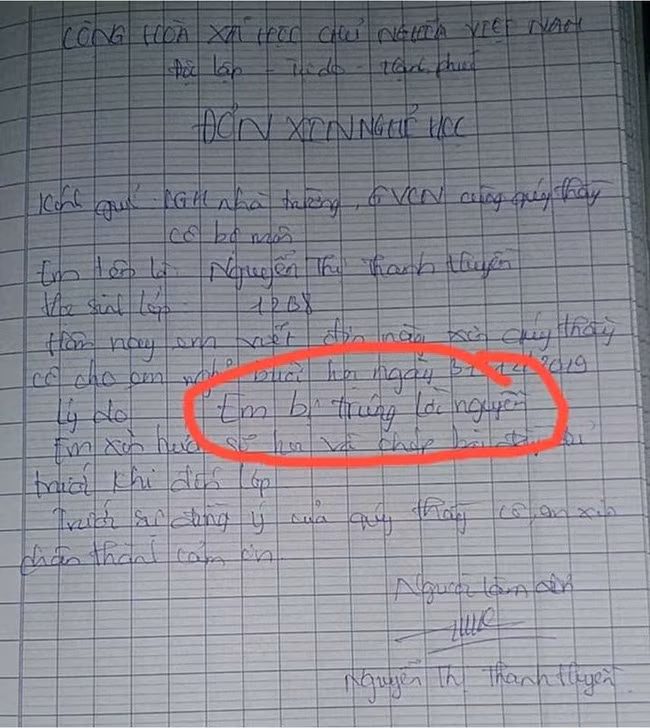 CỘNG HOÀ XÃ HỘI CHỦ NGHĨA VIỆT NAM
Độc lập - Tự do - Hạnh phúc
ĐƠN XIN NGHỈ HỌC
Kính gửi BGH nhà trường, GVCN cùng quý thầy
cô bộ môn
Em tên là Nguyễn Thị Thanh Huyền
Học sinh lớp 12B8
Hôm nay em viết đơn này xin quý thầy
cô cho em nghỉ buổi học ngày 2019
Lý do Em bị trúng lời nguyền
Em xin hứa sẽ học và chép bài đầy đủ
trước khi đến lớp
Trước sự đồng ý của quý thầy cô, em xin
chân thành cảm ơn.
Người làm đơn
Nguyễn Thị Thanh Huyền